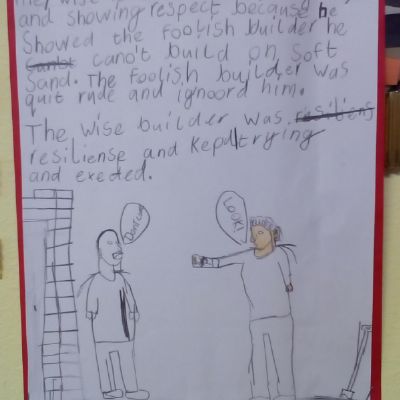 and showing respect because he
Showed the foolish builder he
cano't build on soft
Sand. The foolish builder was
quit rude and ignoord him.
The wise builder was resiliens
resiliense and Kept trying
and exeded.
LOOK!